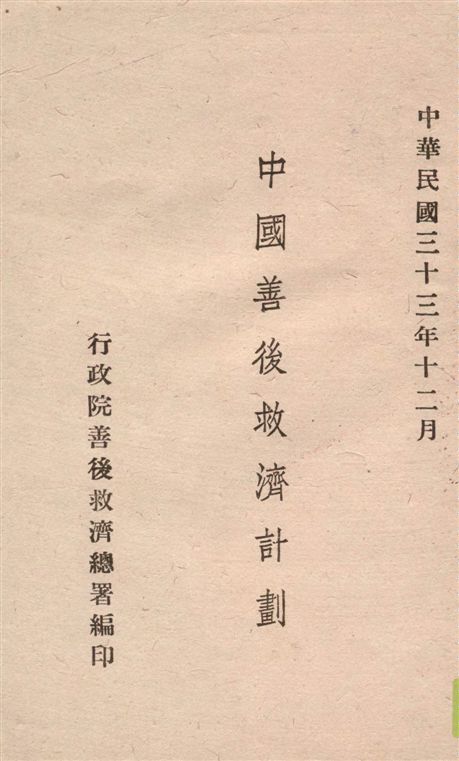 中華民國三十三年十二月
中國善後救濟計劃
行政院善後救濟總署編印